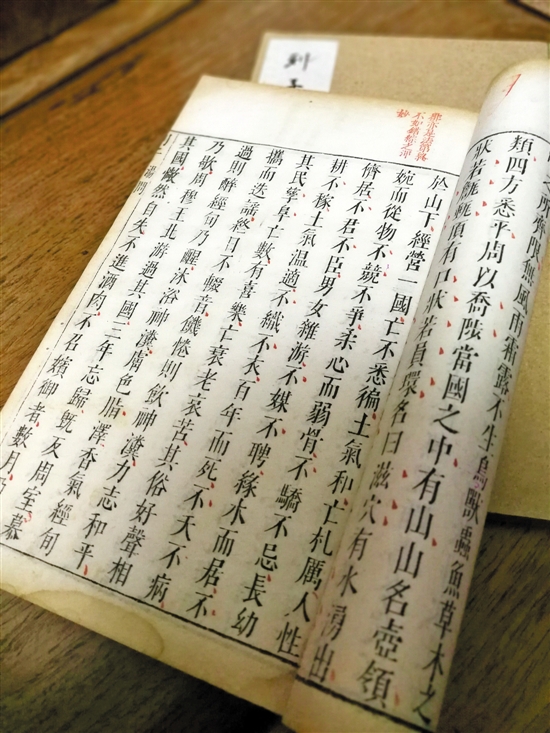 所齊限無風雨霜露不生鳥獸蟲魚草木之
類四方悉平周以喬陟當國之中有山山名壺領
狀若甔甀頂有口狀若員環名曰滋穴有水湧出
於山下經營一國亡不悉徧土氣和亡札厲人性
婉而從物不競不爭柔心而弱骨不驕不忌長幼
儕居不君不臣男女雜游不媒不聘緣水而居不
耕不稼土氣溫適不織不衣百年而死不夭不病
其民孳阜亡數有喜樂亡衰老哀苦其俗好聲相
攜而迭謠終日不輟音饑惓則飲神瀵力志和平
過則醉經旬乃醒沐浴神瀵膚色脂澤香氣經旬
乃歇周穆王北游過其國三年忘歸既反周室慕
其國惝然自失不進酒肉不召嬪御者數月
湯問
列